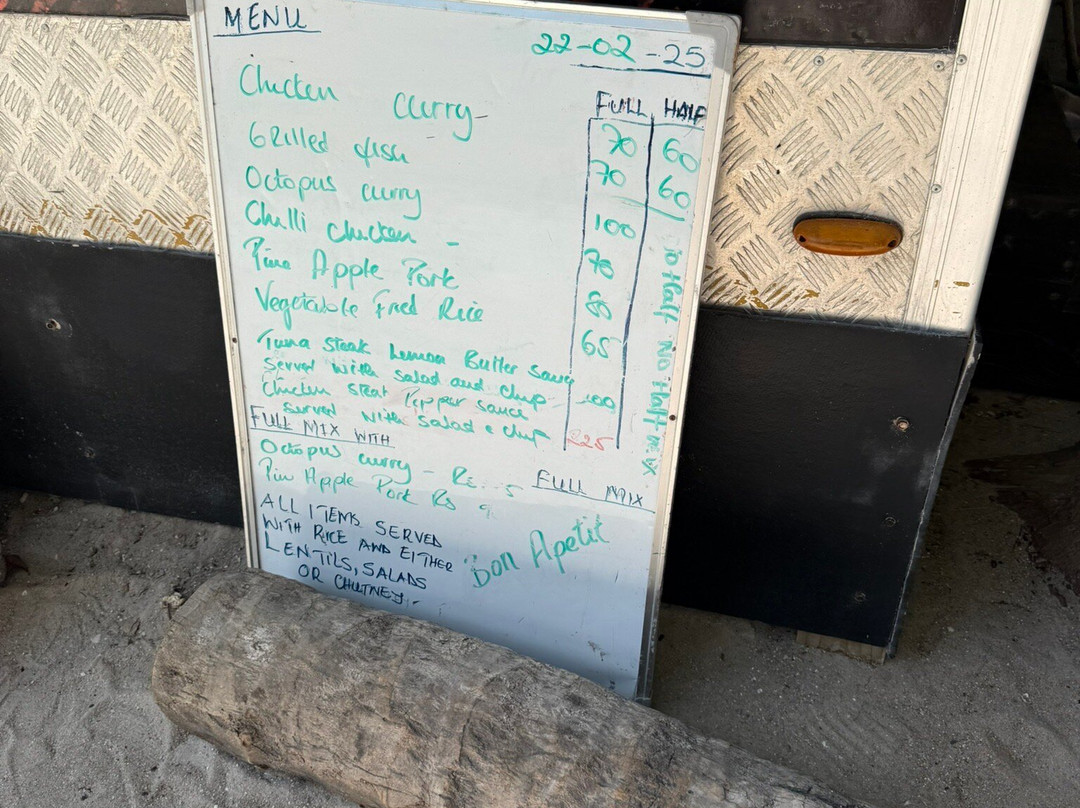 MENU
22-02-25
FULL HALF
Chicken curry- 70 60
Grilled fish 70 60
Octopus curry 100
Chilli chicken - 70
Pine Apple Pork 80
Vegetable Fried Rice 65
Tuna steak Lemon Butter sauce
Served with salad and chip 100
Chicken steak Pepper sauce
served with salad & chip
NO Half NO Half
FULL MIX WITH
Octopus curry - Rs
Pine Apple Pork Rs
FULL MIX
Bon Apetit
ALL ITEMS SERVED
WITH RICE AND EITHER
LENTILS, SALADS
OR CHUTNEY-